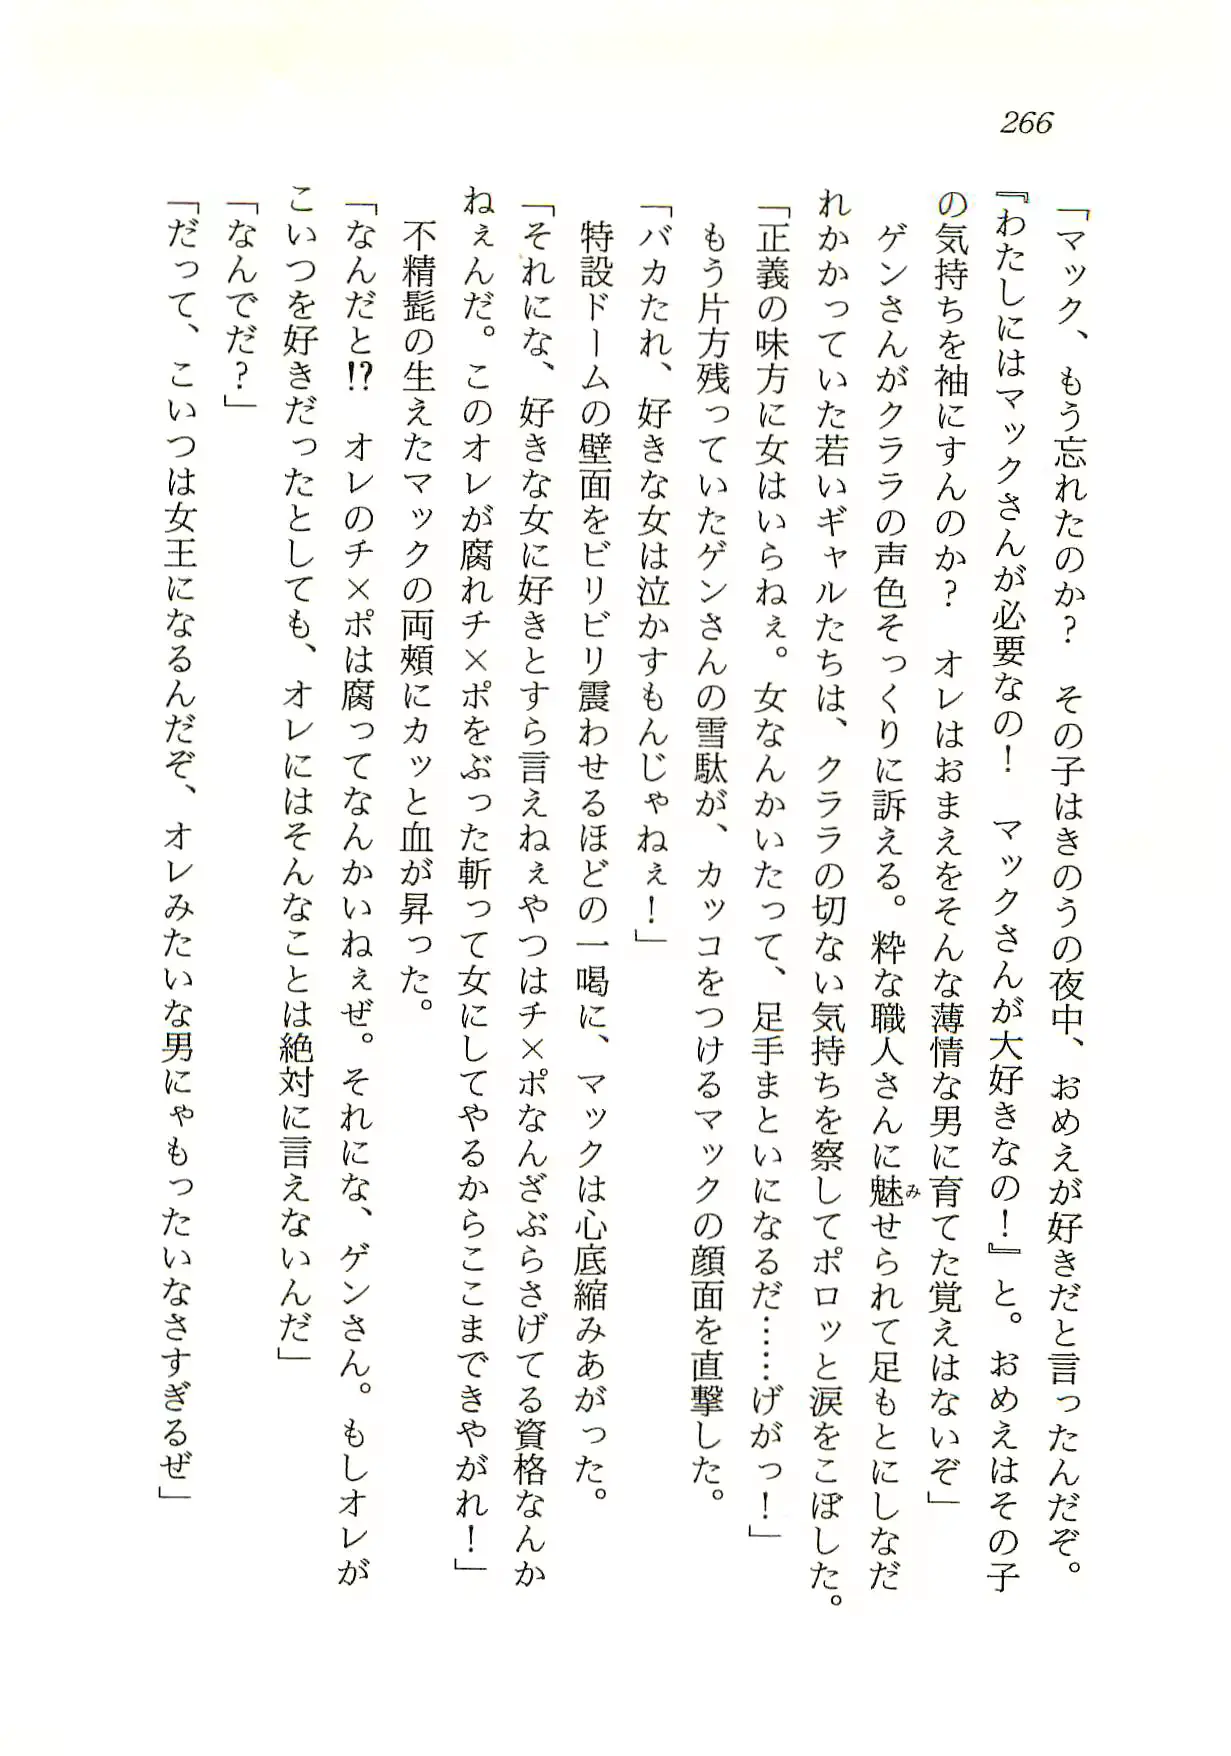 266
「マック、もう忘れたのか？　その子はきのうの夜中、おめえが好きだと言ったんだぞ。
『わたしにはマックさんが必要なの！　マックさんが大好きなの！』と。おめえはその子
の気持ちを袖にすんのか？　オレはおまえをそんな薄情な男に育てた覚えはないぞ」
　ゲンさんがクララの声色そっくりに訴える。粋な職人さんに魅せられて足もとにしなだ
み
れかかっていた若いギャルたちは、クララの切ない気持ちを察してポロッと涙をこぼした。
「正義の味方に女はいらねぇ。女なんかいたって、足手まといになるだ……げがっ！」
　もう片方残っていたゲンさんの雪駄が、カッコをつけるマックの顔面を直撃した。
「バカたれ、好きな女は泣かすもんじゃねぇ！」
　特設ドームの壁面をビリビリ震わせるほどの一喝に、マックは心底縮みあがった。
「それにな、好きな女に好きとすら言えねぇやつはチ×ポなんざぶらさげてる資格なんか
ねぇんだ。このオレが腐れチ×ポをぶった斬って女にしてやるからここまできやがれ！」
　不精髭の生えたマックの両頰にカッと血が昇った。
「なんだと!?　オレのチ×ポは腐ってなんかいねぇぜ。それにな、ゲンさん。もしオレが
こいつを好きだったとしても、オレにはそんなことは絶対に言えないんだ」
「なんでだ？」
「だって、こいつは女王になるんだぞ、オレみたいな男にゃもったいなさすぎるぜ」